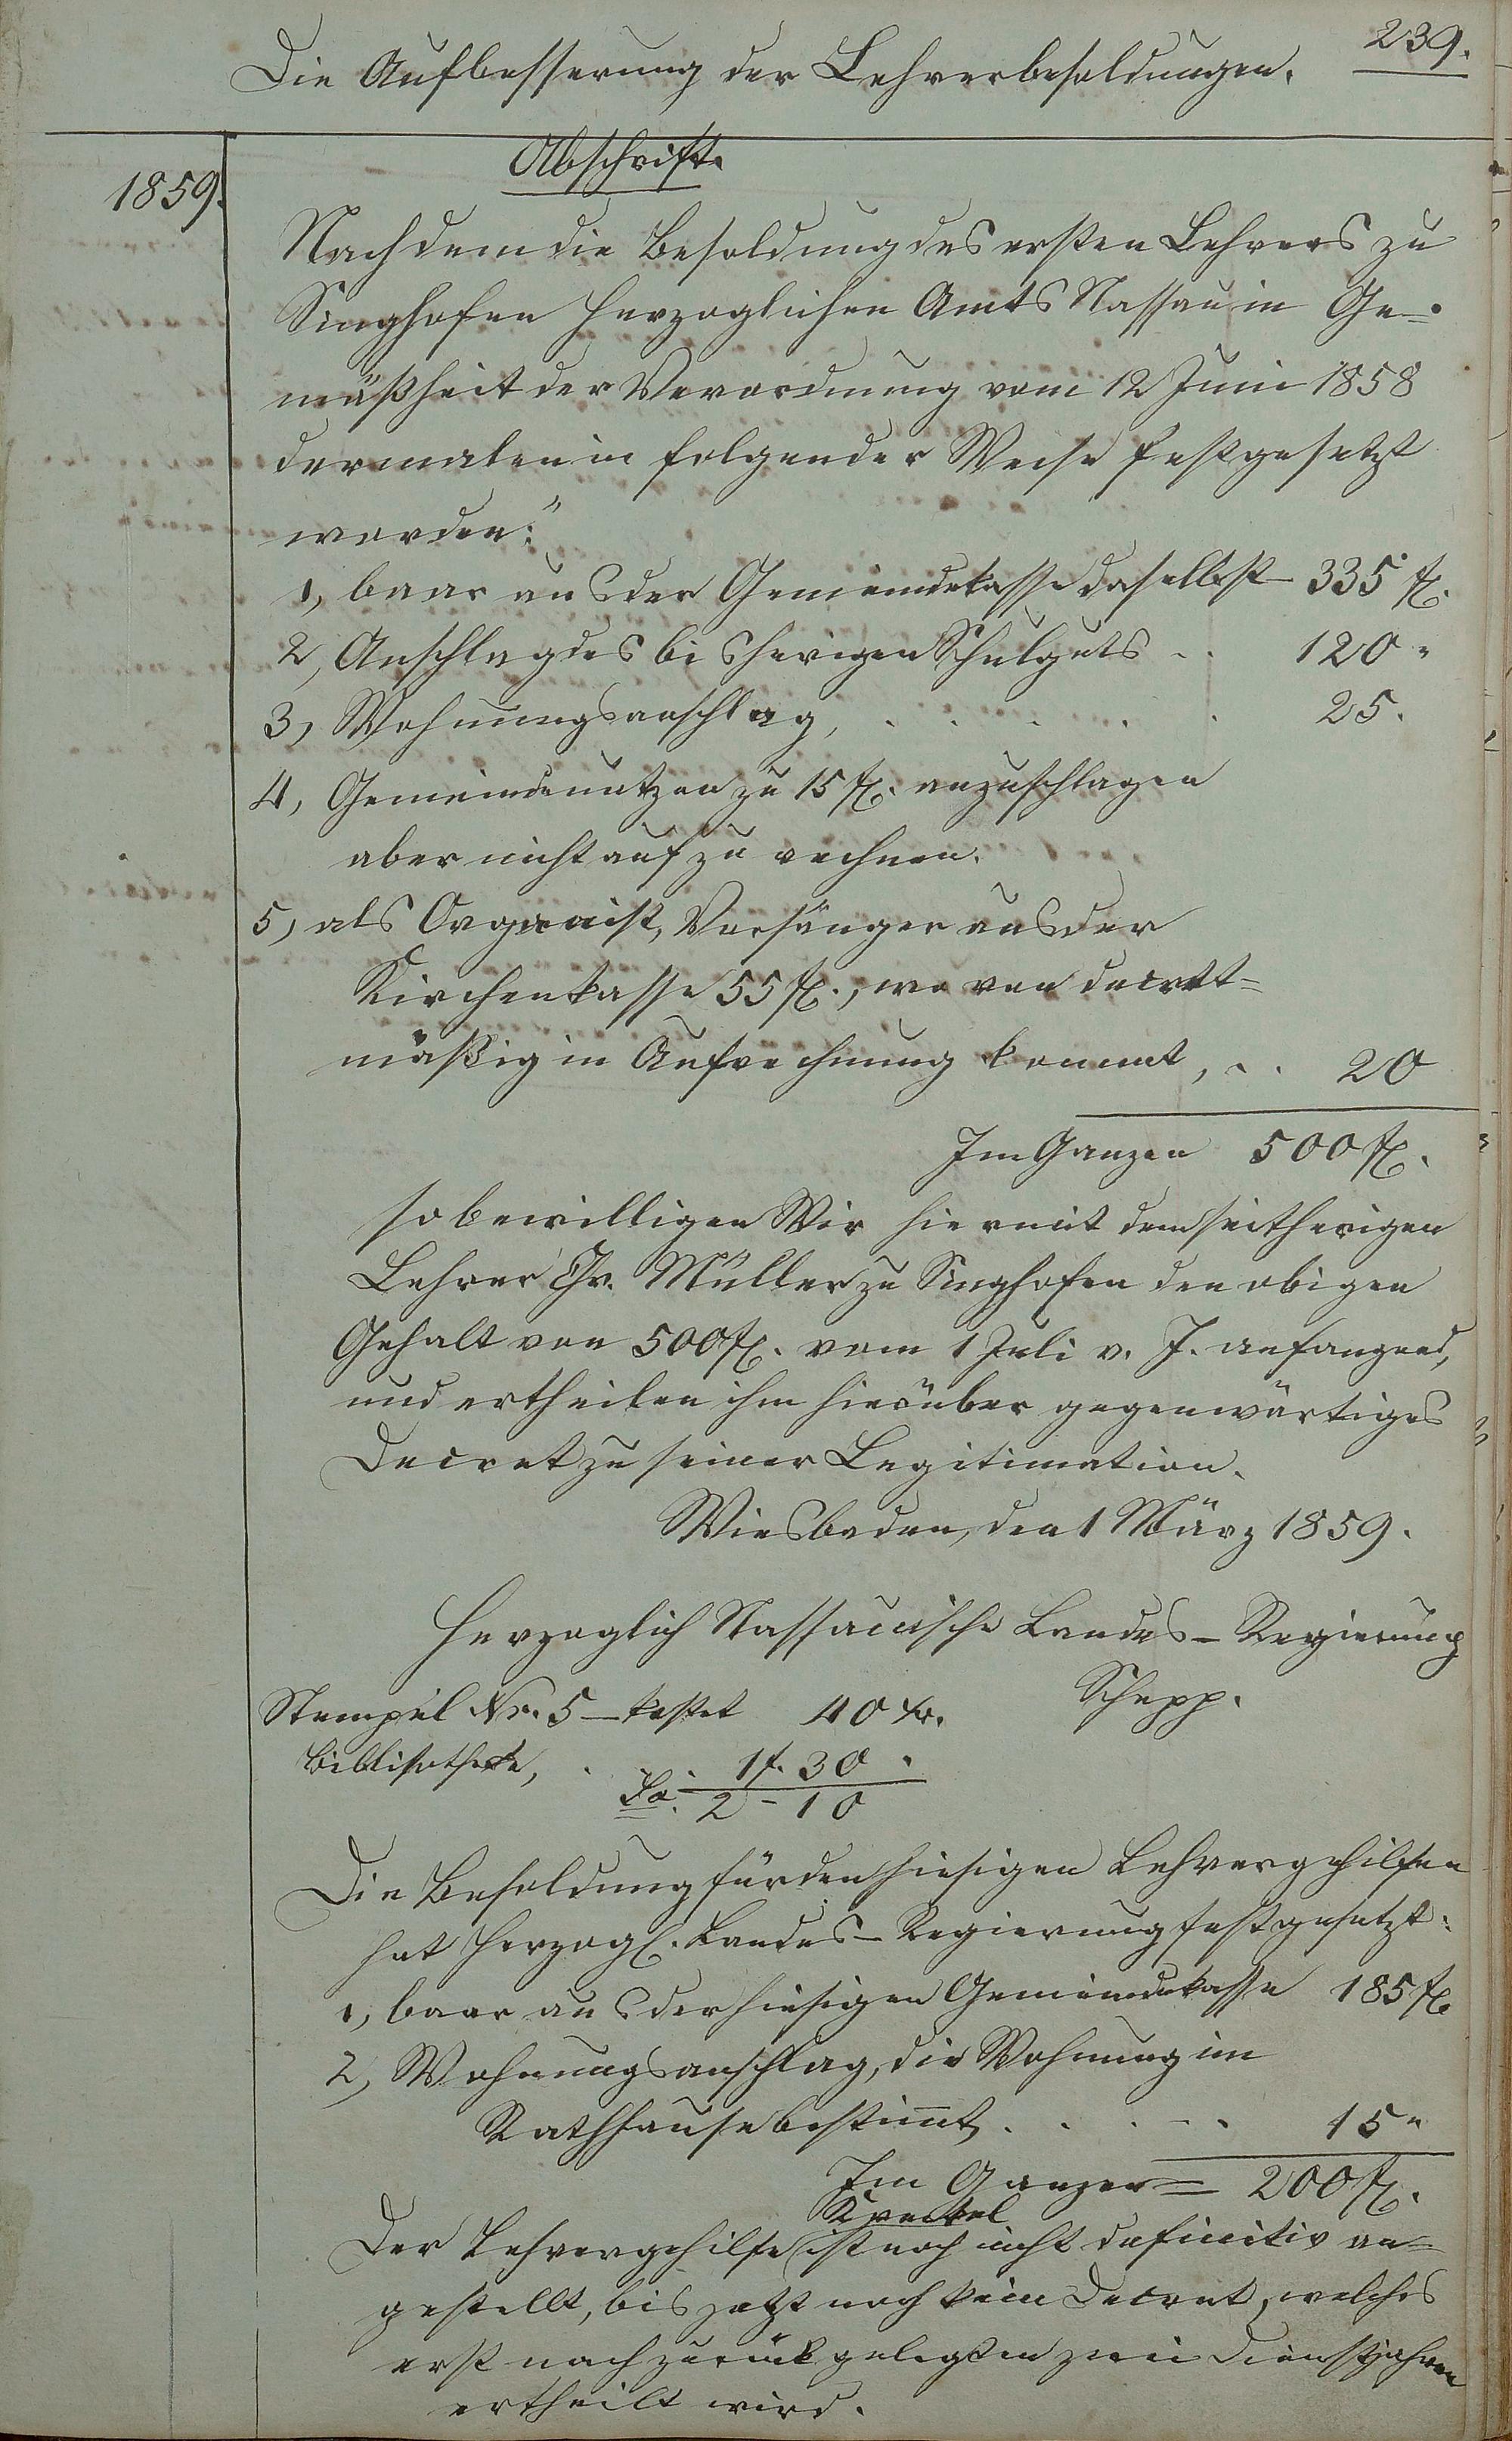 239.
Die Aufbesserung der Lehrerbesoldungen.
1859.
Abschrift.
Nachdem die Besoldung des ersten Lehrers zu
Singhofen Herzoglichen Amts Nassau in Ge=
mäßheit der Verordnung vom 12 Juni 1858
dermalen in folgender Weise festgesetzt
worden:"
1, baar aus der Gemeindekasse daselbst 335 fl.
2, Anschlag des bisherigen Schulguts . . 120 "
3, Wohnungsanschlag, . . . . . 25.
4, Gemeindenutzen zu 15 fl. anzuschlagen
aber nicht aufzurechnen.
5, als Organist, Vorsänger aus der
Kirchenkasse 55 fl., wovon decret=
mäßig in Aufrechnung kommt, . . 20
Im Ganzen 500 fl.
so bewilligen Wir hiermit dem seitherigen
Lehrer Chr. Müller zu Singhofen den obigen
Gehalt von 500 fl. vom 1 Juli v. J. anfangend,
und ertheilen ihm hierüber gegenwärtiges
Decret zu seiner Legitimation.
Wiesbaden, den 1 März 1859.
Herzoglich Nassauische Landes-Regierung
Schepp.
Stempel Nr. 5 - kostet 40 kr.
Bibliothek, . . . 1 f. 30 "
Sa. 2 - 10
Die Besoldung für den hiesigen Lehrergehilfen
hat Herzogl. Landes-Regierung festgesetzt:
1, baar aus der hiesigen Gemeindekasse 185 fl
2, Wohnungsanschlag, die Wohnung im
Rathhause bestimmt, . . . - . 15 "
Im Ganzen = 200 fl.
Kunkel
Der Lehrergehilfe ist noch nicht definitiv an=
gestellt, bis jetzt noch kein Decret, welches
erst nach zurückgelegten zwei Dienstjahren
ertheilt wird.